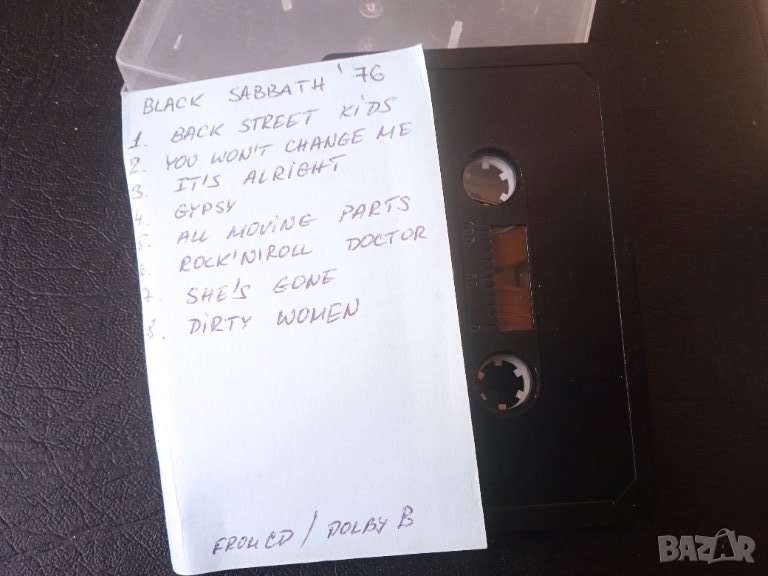 BLACK SABBATH '76
1. BACK STREET KIDS
2. YOU WON'T CHANGE ME
3. IT'S ALRIGHT
4. GYPSY
5. ALL MOVING PARTS
6. ROCK'N'ROLL DOCTOR
7. SHE'S GONE
8. DIRTY WOMEN
FROM CD / DOLBY B
BAZAR